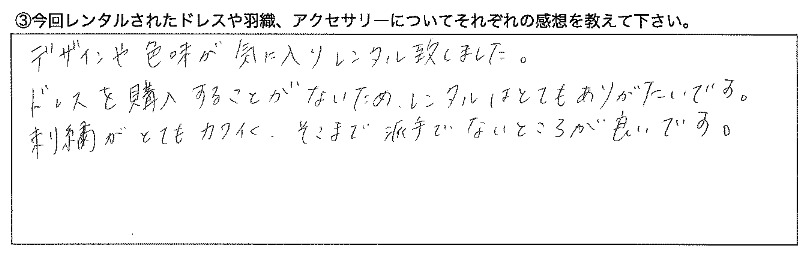 ③今回レンタルされたドレスや羽織、アクセサリーについてそれぞれの感想を教えて下さい。
デザインや色味が気に入りレンタル致しました。
ドレスを購入することがないため、レンタルはとてもありがたいです。
刺繍がとてもカワイく、そこまで派手でないところが良いです。